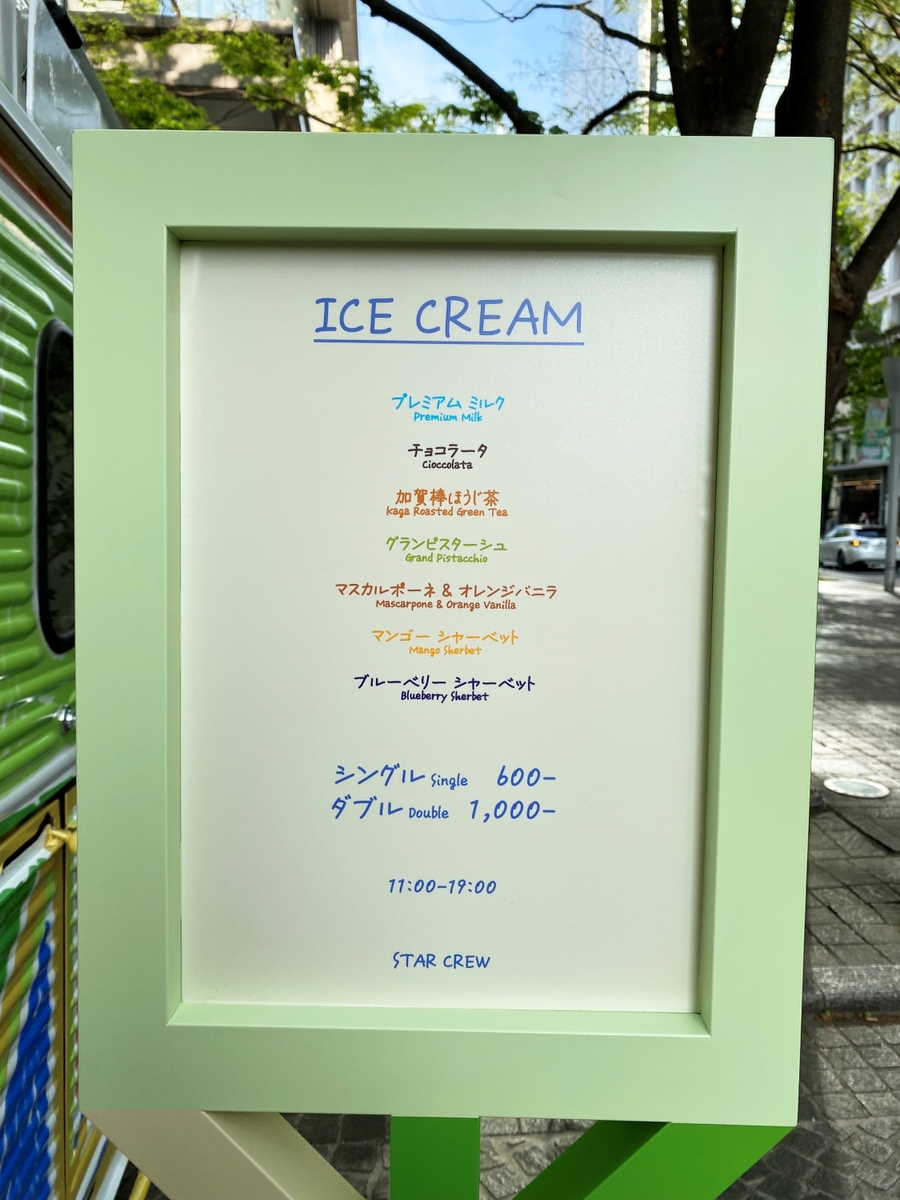 ICE CREAM
プレミアム ミルク
Premium Milk
チョコラータ
Cioccolata
加賀棒ほうじ茶
Kaga Roasted Green Tea
グランピスターシュ
Grand Pistacchio
マスカルポーネ & オレンジバニラ
Mascarpone & Orange Vanilla
マンゴー シャーベット
Mango Sherbet
ブルーベリー シャーベット
Blueberry Sherbet
シングル Single 600-
ダブル Double 1,000-
11:00-19:00
STAR CREW